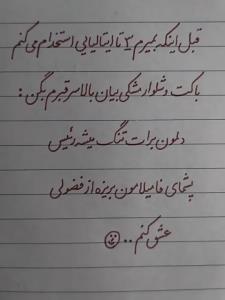 قبل اینکه بمیرم ۳ تا ایتالیایی استخدام می کنم
با کت و شلوار مشکی بیان بالا سر قبرم بگن :
دلمون برات تنگ میشه رئیس
پشمای فامیلامون بریزه از فضولی
عشق کنم..